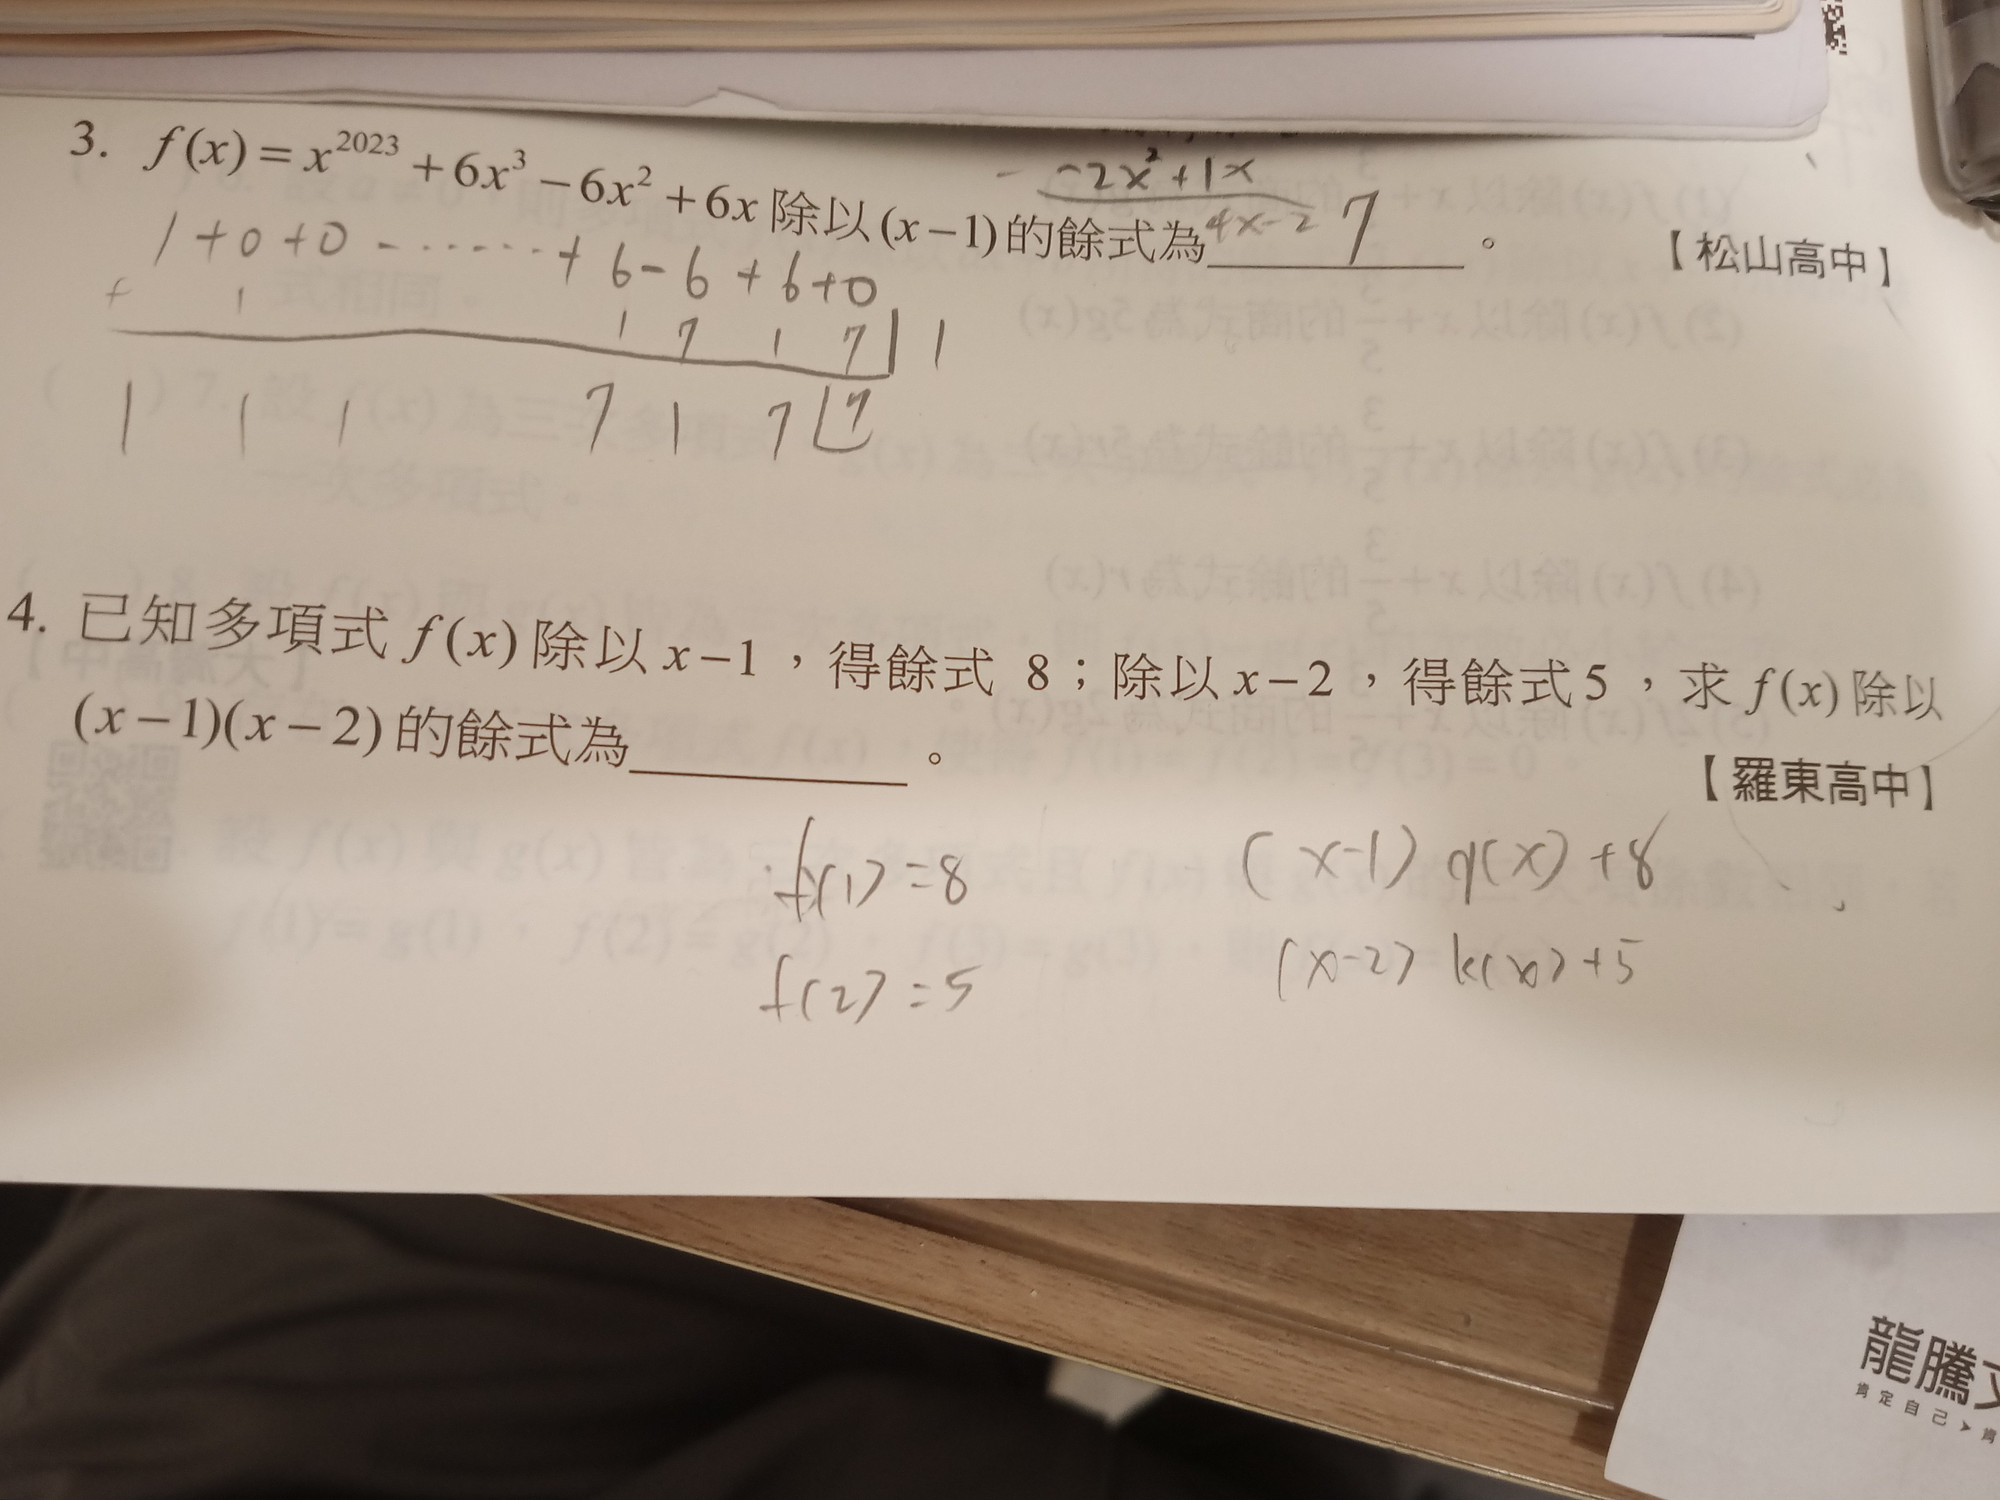 -2x²+1x
4x-2
3. f(x)=x²⁰²³+6x³-6x²+6x除以(x-1)的餘式為 7 。
【松山高中】
1+0+0-······+6-6+6+0
+ 1 1 7 1 7 | 1
1 1 1 7 1 7 7
4. 已知多項式f(x)除以x-1，得餘式 8；除以x-2，得餘式5，求f(x)除以
(x-1)(x-2)的餘式為________。
【羅東高中】
f(1)=8 (x-1)q(x)+8
f(2)=5 (x-2)k(x)+5
龍騰
肯定自己➤肯